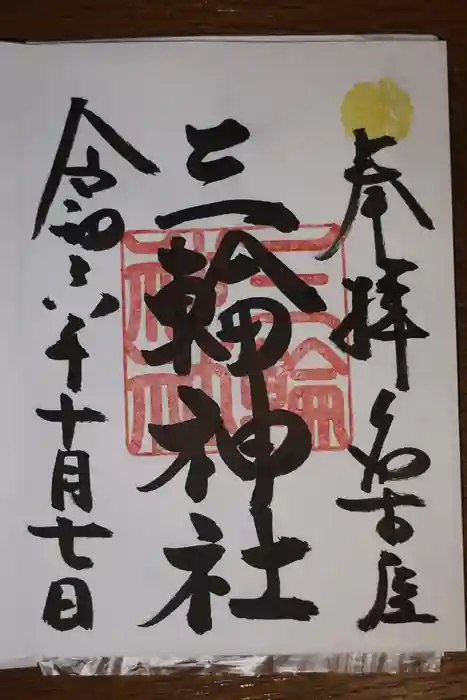 奉拝 名古屋
三輪神社
令和六年十月七日
三輪
神社